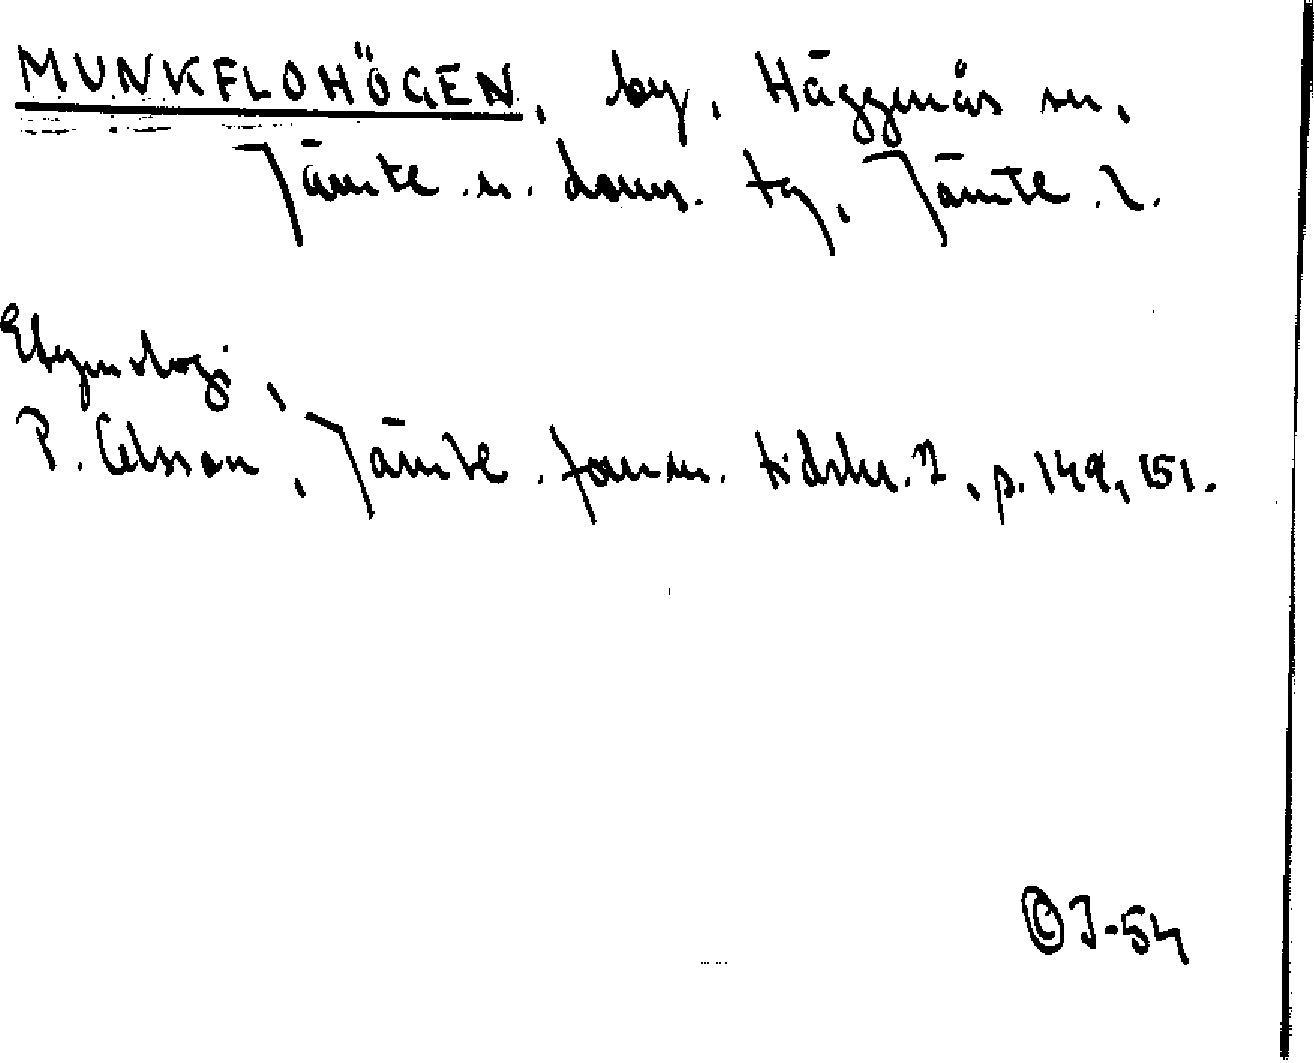 MUNKFLOHÖGEN, by, Häggenås sn,
Jämte. n. doms. tg, Jämte. l.
Etymologi,
P. Olsson, Jämte. fornm. tidskr. 2, p. 149, 151.
© J-54